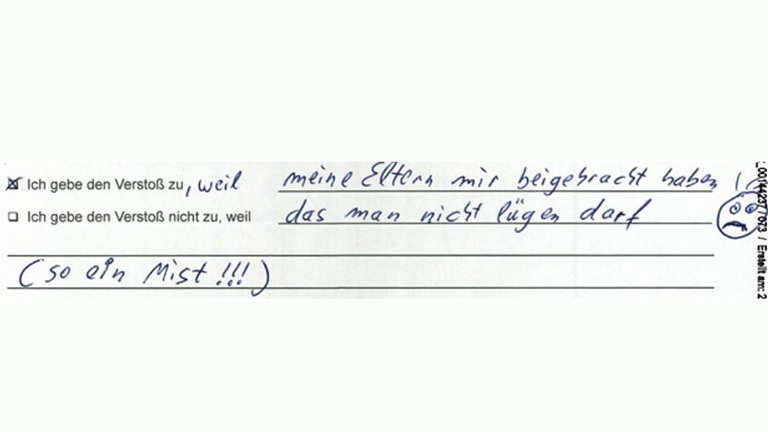 ☒ Ich gebe den Verstoß zu, weil meine Eltern mir beigebracht haben
☐ Ich gebe den Verstoß nicht zu, weil das man nicht lügen darf
(so ein Mist!!!)
/ Erstellt am: 2